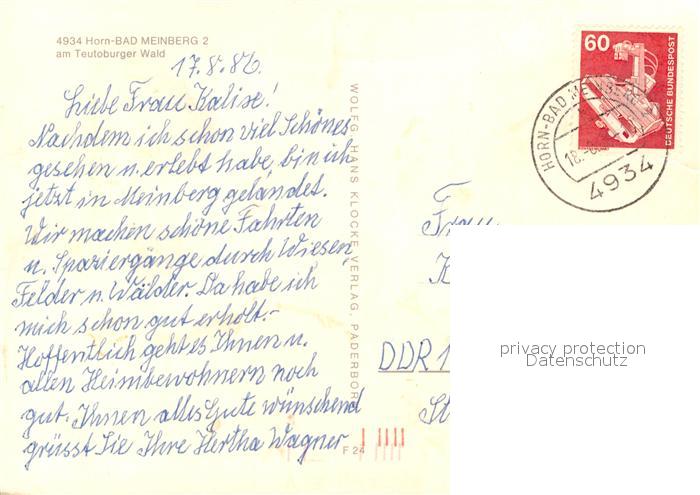 4934 Horn-BAD MEINBERG 2
am Teutoburger Wald
17.8.86.
Liebe Frau Kalise!
Nachdem ich schon viel Schönes
gesehen u. erlebt habe, bin ich
jetzt in Meinberg gelandet.
Wir machen schöne Fahrten
u. Spaziergänge durch Wiesen,
Felder u. Wälder. Da habe ich
mich schon gut erholt.-
Hoffentlich geht es Ihnen u.
allen Heimbewohnern noch
gut. Ihnen alles Gute wünschend
grüsst Sie Ihre Hertha Wagner
WOLFG. HANS KLOCKE VERLAG, PADERBOR
F 24
60
DEUTSCHE BUNDESPOST
HORN-BAD
18.-
4934
Frau
K
DDR 1
St
privacy protection
Datenschutz